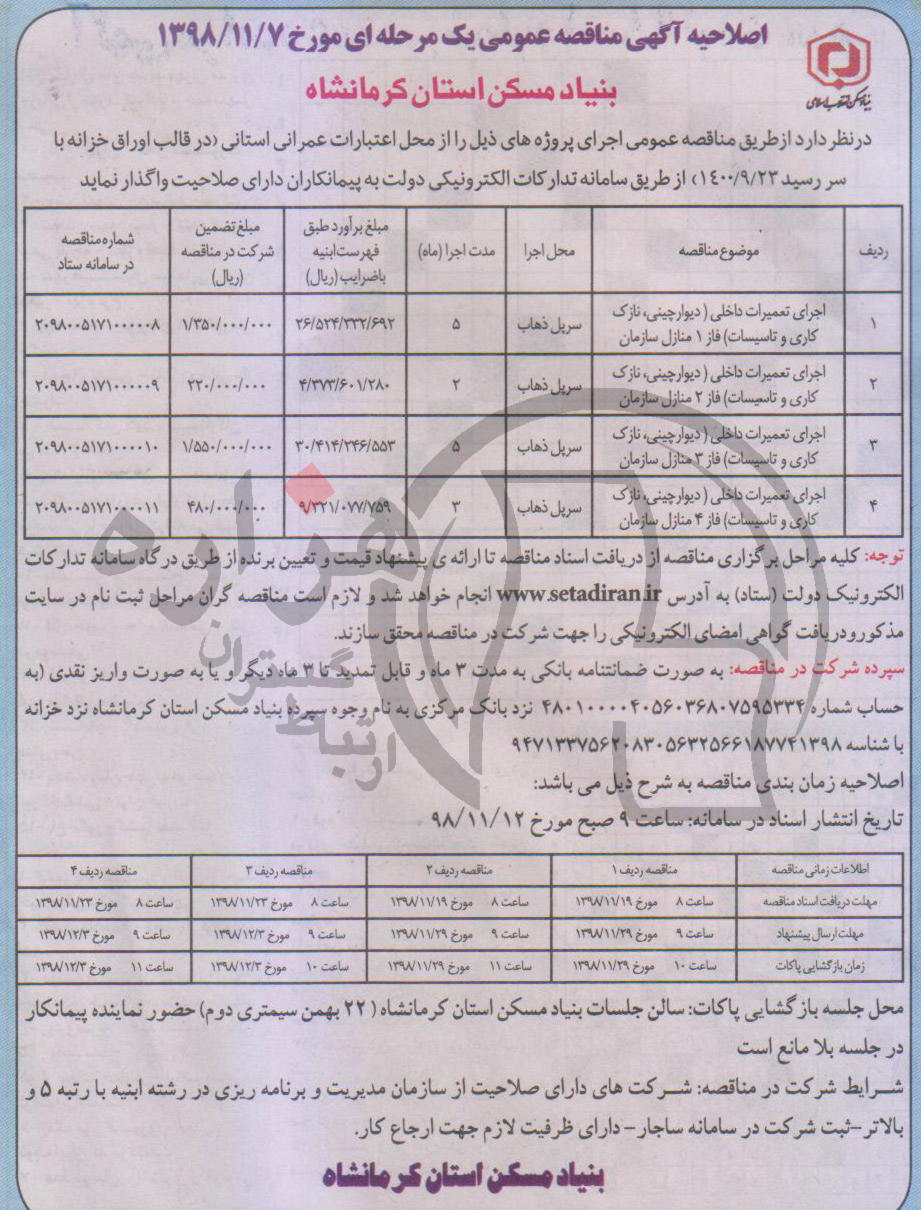 اصلاحیه آگهی مناقصه عمومی یک مرحله ای مورخ ۱۳۹۸/۱۱/۷
بنیاد مسکن استان کرمانشاه
بنیاد مسکن انقلاب اسلامی
درنظر دارد ازطریق مناقصه عمومی اجرای پروژه های ذیل را از محل اعتبارات عمرانی استانی (در قالب اوراق خزانه با
سر رسید ۱۴۰۰/۹/۲۳) از طریق سامانه تدارکات الکترونیکی دولت به پیمانکاران دارای صلاحیت واگذار نماید
ردیف | موضوع مناقصه | محل اجرا | مدت اجرا (ماه) | مبلغ برآورد طبق فهرست ابنیه باضرایب (ریال) | مبلغ تضمین شرکت در مناقصه (ریال) | شماره مناقصه در سامانه ستاد
۱ | اجرای تعمیرات داخلی ( دیوارچینی، نازک کاری و تاسیسات) فاز ۱ منازل سازمان | سرپل ذهاب | ۵ | ۲۶/۵۲۴/۳۳۲/۶۹۲ | ۱/۳۵۰/۰۰۰/۰۰۰ | ۲۰۹۸۰۰۵۱۷۱۰۰۰۰۰۸
۲ | اجرای تعمیرات داخلی ( دیوارچینی، نازک کاری و تاسیسات) فاز ۲ منازل سازمان | سرپل ذهاب | ۲ | ۴/۳۷۳/۶۰۱/۲۸۰ | ۲۲۰/۰۰۰/۰۰۰ | ۲۰۹۸۰۰۵۱۷۱۰۰۰۰۰۹
۳ | اجرای تعمیرات داخلی ( دیوارچینی، نازک کاری و تاسیسات) فاز ۳ منازل سازمان | سرپل ذهاب | ۵ | ۳۰/۴۱۴/۲۴۶/۵۵۳ | ۱/۵۵۰/۰۰۰/۰۰۰ | ۲۰۹۸۰۰۵۱۷۱۰۰۰۰۱۰
۴ | اجرای تعمیرات داخلی ( دیوارچینی، نازک کاری و تاسیسات) فاز ۴ منازل سازمان | سرپل ذهاب | ۳ | ۹/۳۲۱/۰۷۷/۷۵۹ | ۴۸۰/۰۰۰/۰۰۰ | ۲۰۹۸۰۰۵۱۷۱۰۰۰۰۱۱
توجه: کلیه مراحل برگزاری مناقصه از دریافت اسناد مناقصه تا ارائه ی پیشنهاد قیمت و تعیین برنده از طریق درگاه سامانه تدارکات
الکترونیک دولت (ستاد) به آدرس www.setadiran.ir انجام خواهد شد و لازم است مناقصه گران مراحل ثبت نام در سایت
مذکورودریافت گواهی امضای الکترونیکی را جهت شرکت در مناقصه محقق سازند.
سپرده شرکت در مناقصه: به صورت ضمانتنامه بانکی به مدت ۳ ماه و قابل تمدید تا ۳ ماه دیگر و یا به صورت واریز نقدی (به
حساب شماره ۴۸۰۱۰۰۰۰۴۰۵۶۰۳۶۸۰۷۵۹۵۳۳۴ نزد بانک مرکزی به نام وجوه سپرده بنیاد مسکن استان کرمانشاه نزد خزانه
با شناسه ۹۴۷۱۳۳۷۵۶۲۰۸۳۰۵۶۳۲۵۶۶۱۸۷۷۴۱۳۹۸
اصلاحیه زمان بندی مناقصه به شرح ذیل می باشد:
تاریخ انتشار اسناد در سامانه: ساعت ۹ صبح مورخ ۹۸/۱۱/۱۲
اطلاعات زمانی مناقصه | مناقصه ردیف ۱ | مناقصه ردیف ۲ | مناقصه ردیف ۳ | مناقصه ردیف ۴
مهلت دریافت اسناد مناقصه | ساعت ۸ مورخ ۱۳۹۸/۱۱/۱۹ | ساعت ۸ مورخ ۱۳۹۸/۱۱/۱۹ | ساعت ۸ مورخ ۱۳۹۸/۱۱/۲۳ | ساعت ۸ مورخ ۱۳۹۸/۱۱/۲۳
مهلت ارسال پیشنهاد | ساعت ۹ مورخ ۱۳۹۸/۱۱/۲۹ | ساعت ۹ مورخ ۱۳۹۸/۱۱/۲۹ | ساعت ۹ مورخ ۱۳۹۸/۱۲/۳ | ساعت ۹ مورخ ۱۳۹۸/۱۲/۳
زمان بازگشایی پاکات | ساعت ۱۰ مورخ ۱۳۹۸/۱۱/۲۹ | ساعت ۱۱ مورخ ۱۳۹۸/۱۱/۲۹ | ساعت ۱۰ مورخ ۱۳۹۸/۱۲/۳ | ساعت ۱۱ مورخ ۱۳۹۸/۱۲/۳
محل جلسه بازگشایی پاکات: سالن جلسات بنیاد مسکن استان کرمانشاه ( ۲۲ بهمن سیمتری دوم) حضور نماینده پیمانکار
در جلسه بلا مانع است
شرایط شرکت در مناقصه: شرکت های دارای صلاحیت از سازمان مدیریت و برنامه ریزی در رشته ابنیه با رتبه ۵ و
بالاتر-ثبت شرکت در سامانه ساجار-دارای ظرفیت لازم جهت ارجاع کار.
بنیاد مسکن استان کرمانشاه